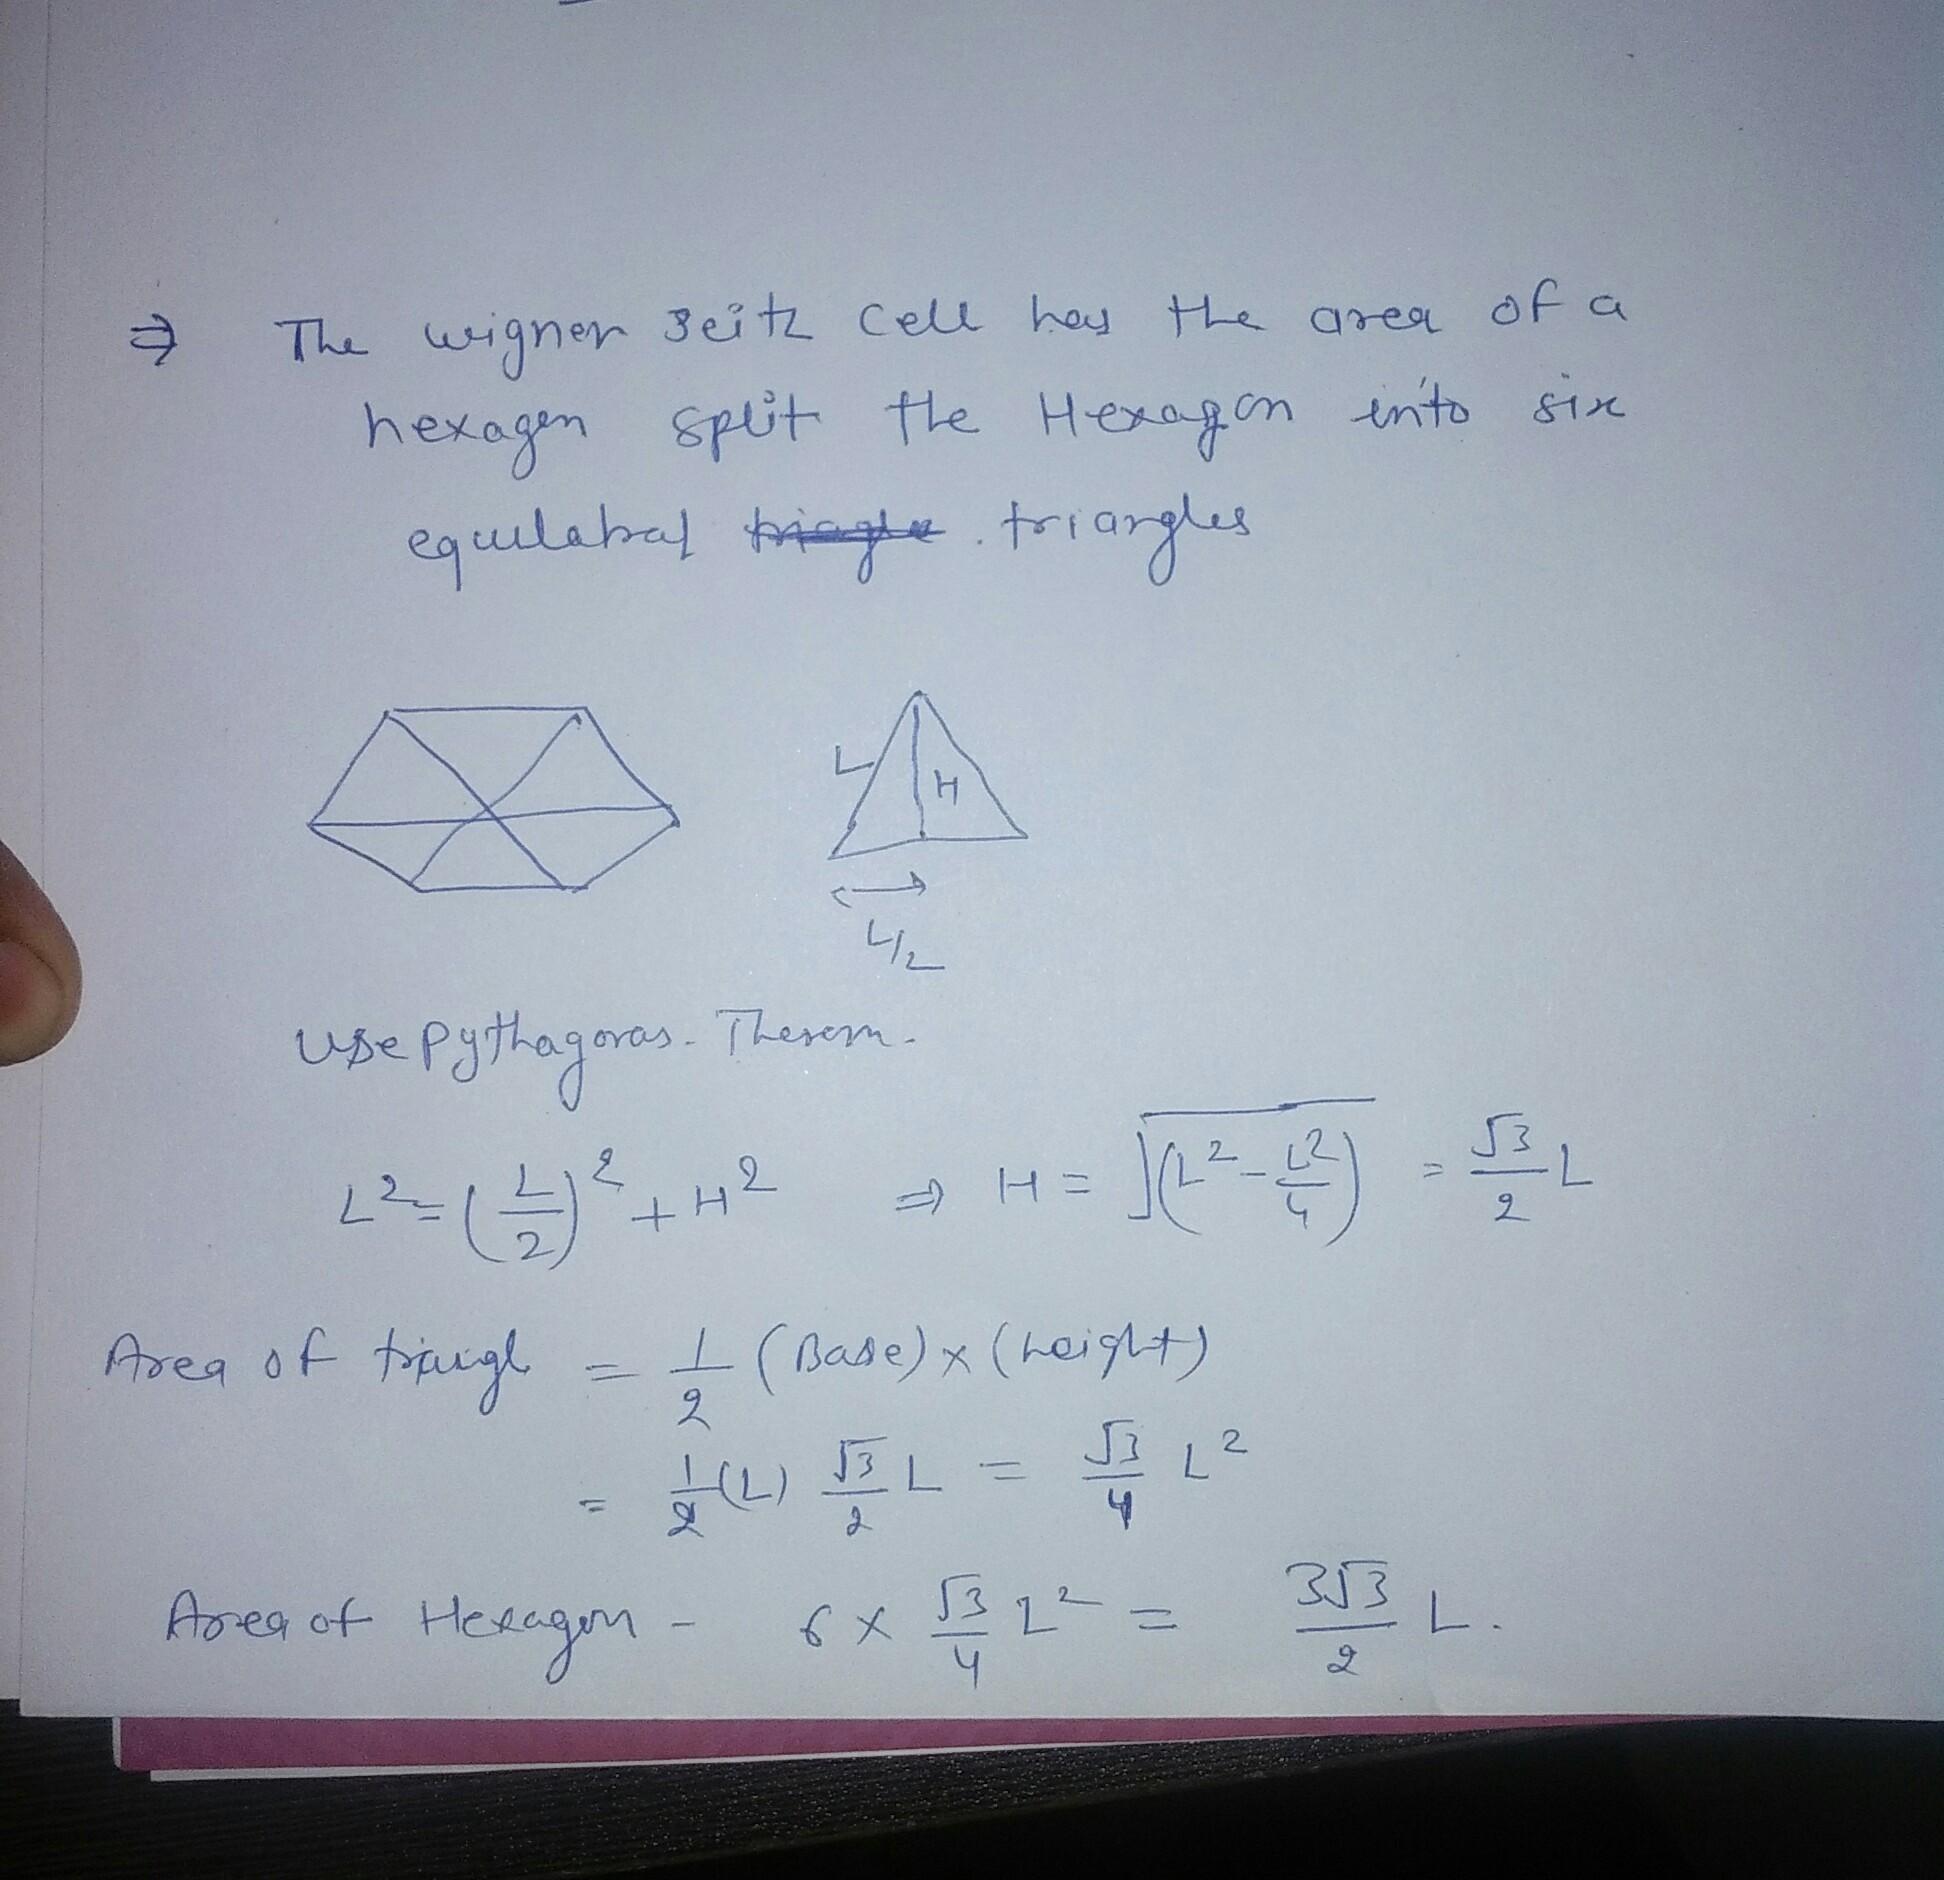 ⇒ The wigner Seitz Cell has the area of a
hexagen split the Hexagon into six
equilatral triangles
L H
L/2
Use pythagoras. Therem.
L² = (L/2)² + H² ⇒ H = √(L² - L²/4) = √3/2 L
Area of triangl = 1/2 (Base) x (height)
= 1/2 (L) √3/2 L = √3/4 L²
Area of Hexagon - 6 x √3/4 L² = 3√3/2 L.